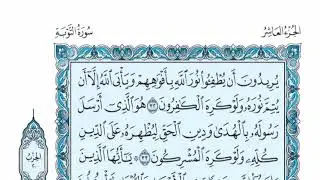 الجزء العاشر
سورة التوبة
يُرِيدُونَ أَن يُطْفِـُٔوا۟ نُورَ ٱللَّهِ بِأَفْوَٰهِهِمْ وَيَأْبَى ٱللَّهُ إِلَّآ أَن
يُتِمَّ نُورَهُۥ وَلَوْ كَرِهَ ٱلْكَٰفِرُونَ ٣٢ هُوَ ٱلَّذِىٓ أَرْسَلَ
رَسُولَهُۥ بِٱلْهُدَىٰ وَدِينِ ٱلْحَقِّ لِيُظْهِرَهُۥ عَلَى ٱلدِّينِ
كُلِّهِۦ وَلَوْ كَرِهَ ٱلْمُشْرِكُونَ ٣٣ ۞ يَٰٓأَيُّهَا ٱلَّذِينَ